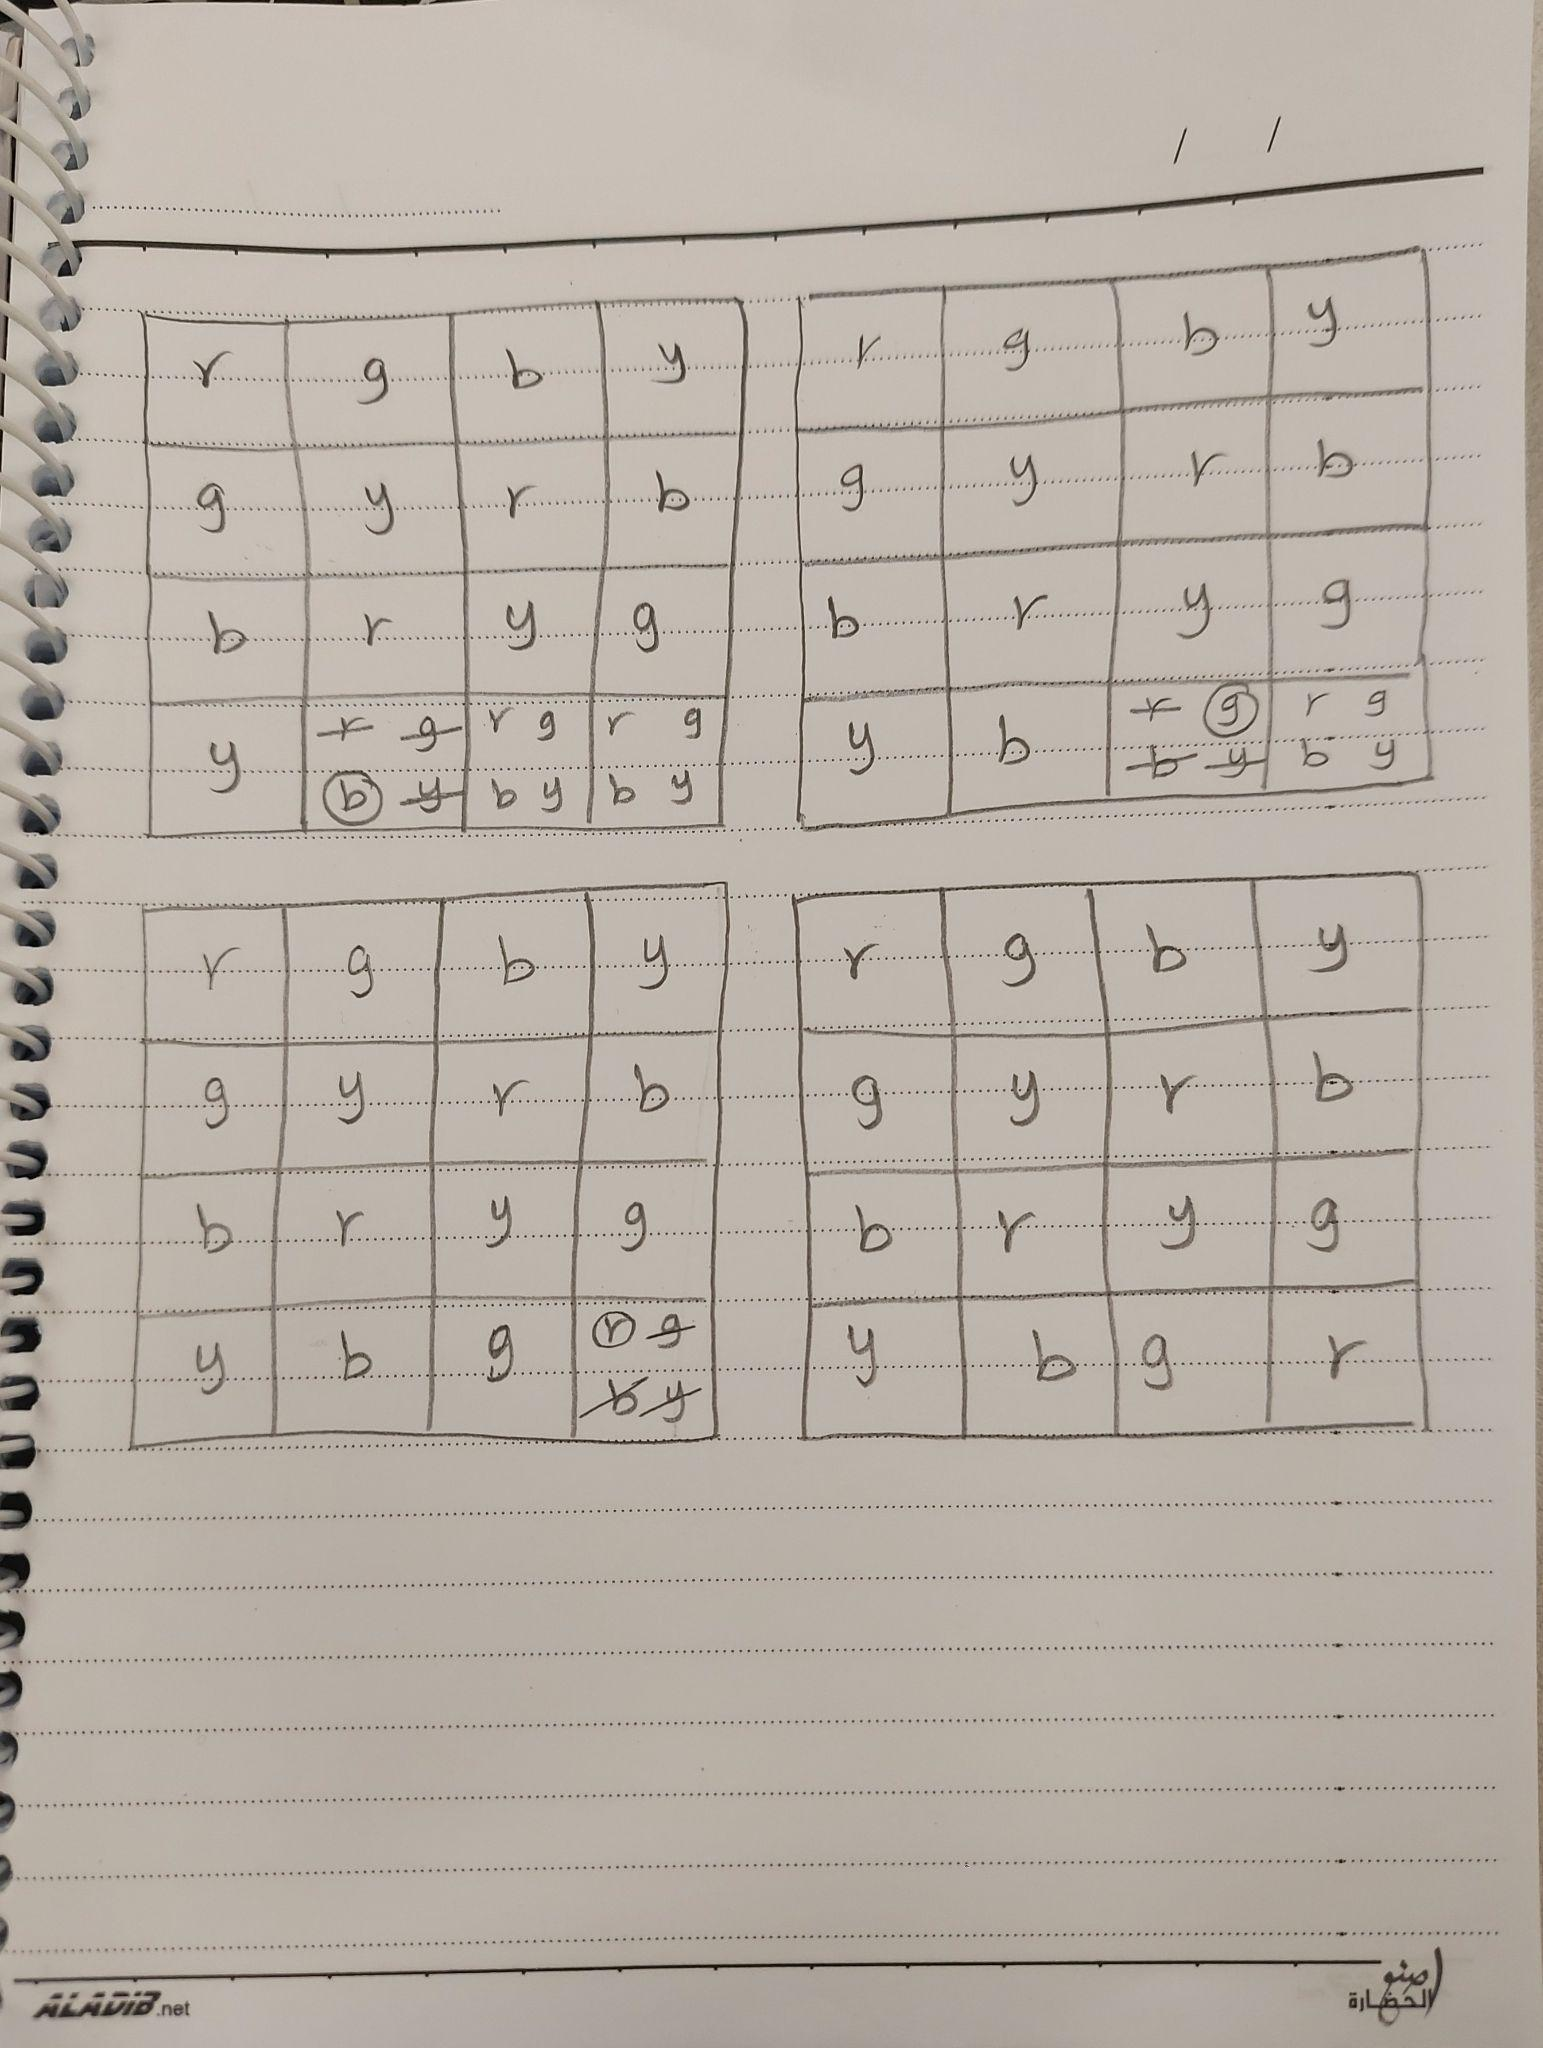 / /
r g b y
g y r b
b r y g
y r g b y r g b y r g b y
r g b y
g y r b
b r y g
y b r g b y r g b y
r g b y
g y r b
b r y g
y b g r g b y
r g b y
g y r b
b r y g
y b g r
ALADIB.net
صنو
الحضارة